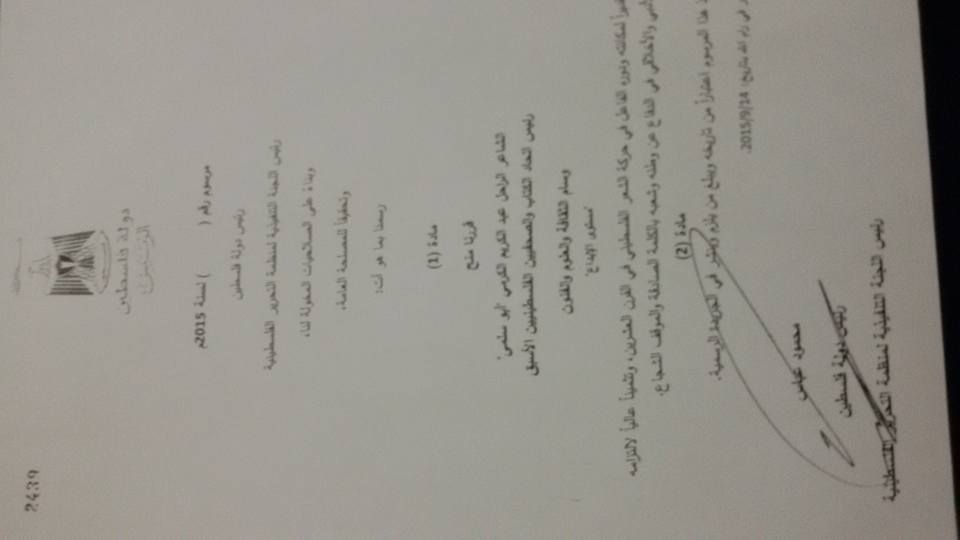 2439
دولة فلسطين
الرئيس
مرسوم رقم (       ) لسنة 2015م
رئيس دولة فلسطين
رئيس اللجنة التنفيذية لمنظمة التحرير الفلسطينية
وبناءً على الصلاحيات المخولة لنا،
وتحقيقاً للمصلحة العامة،
رسمنا بما هو آت:
مادة (1)
قررنا منح
الشاعر الراحل عبد الكريم الكرمي "أبو سلمى"
رئيس اتحاد الكتاب والصحفيين الفلسطينيين الأسبق
وسام الثقافة والعلوم والفنون
"مستوى الإبداع"
لمكانته ودوره الفاعل في حركة الشعر الفلسطيني في القرن العشرين، وتثميناً عالياً لالتزامه
والأخلاقي في الدفاع عن وطنه وشعبه بالكلمة الصادقة والموقف الشجاع.
مادة (2)
هذا المرسوم اعتباراً من تاريخه ويبلغ من يلزم وينشر في الجريدة الرسمية.
في رام الله بتاريخ: 2015/9/14.
محمود عباس
رئيس دولة فلسطين
رئيس اللجنة التنفيذية لمنظمة التحرير الفلسطينية